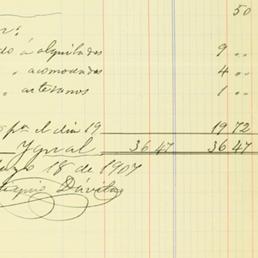 50
á alquilados 9 "
" acomodados 4 "
" artesanos 1 "
pa el dia 19 19 72
Ygual 36 47 36 47
18 de 1907
Dávila